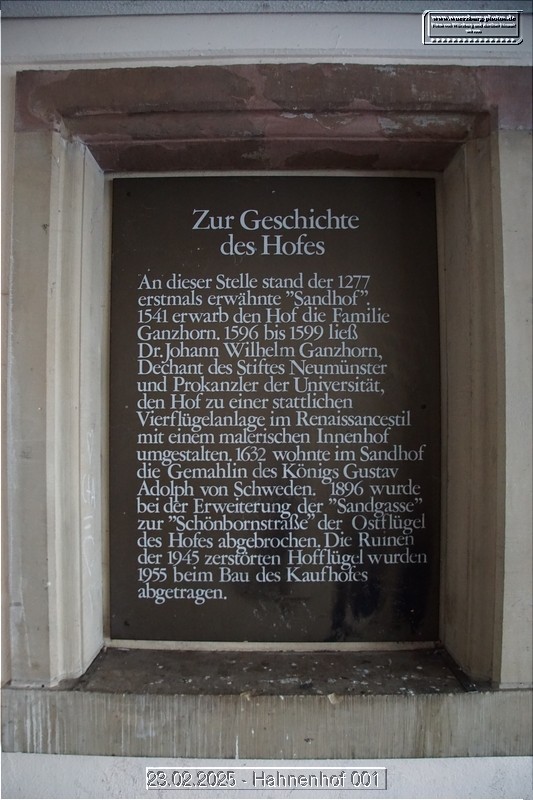 www.wuerzburg-photos.de
Zur Geschichte
des Hofes
An dieser Stelle stand der 1277
erstmals erwähnte "Sandhof".
1541 erwarb den Hof die Familie
Ganzhorn. 1596 bis 1599 ließ
Dr. Johann Wilhelm Ganzhorn,
Dechant des Stiftes Neumünster
und Prokanzler der Universität,
den Hof zu einer stattlichen
Vierflügelanlage im Renaissancestil
mit einem malerischen Innenhof
umgestalten. 1632 wohnte im Sandhof
die Gemahlin des Königs Gustav
Adolph von Schweden. 1896 wurde
bei der Erweiterung der "Sandgasse"
zur "Schönbornstraße" der Ostflügel
des Hofes abgebrochen. Die Ruinen
der 1945 zerstörten Hofflügel wurden
1955 beim Bau des Kaufhofes
abgetragen.
23.02.2025 - Hahnenhof 001